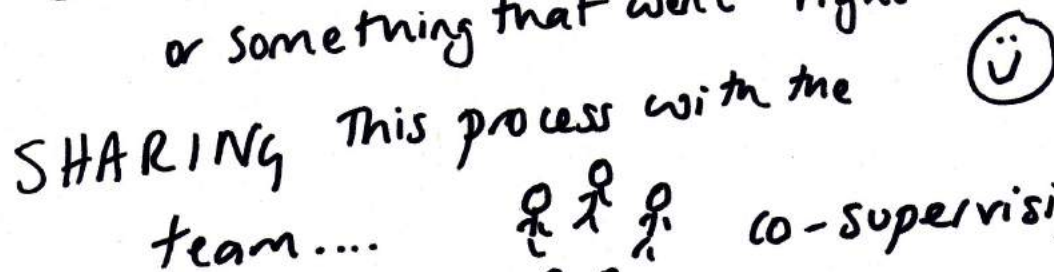 or something that went right
SHARING This process with the
team.... co-supervisi